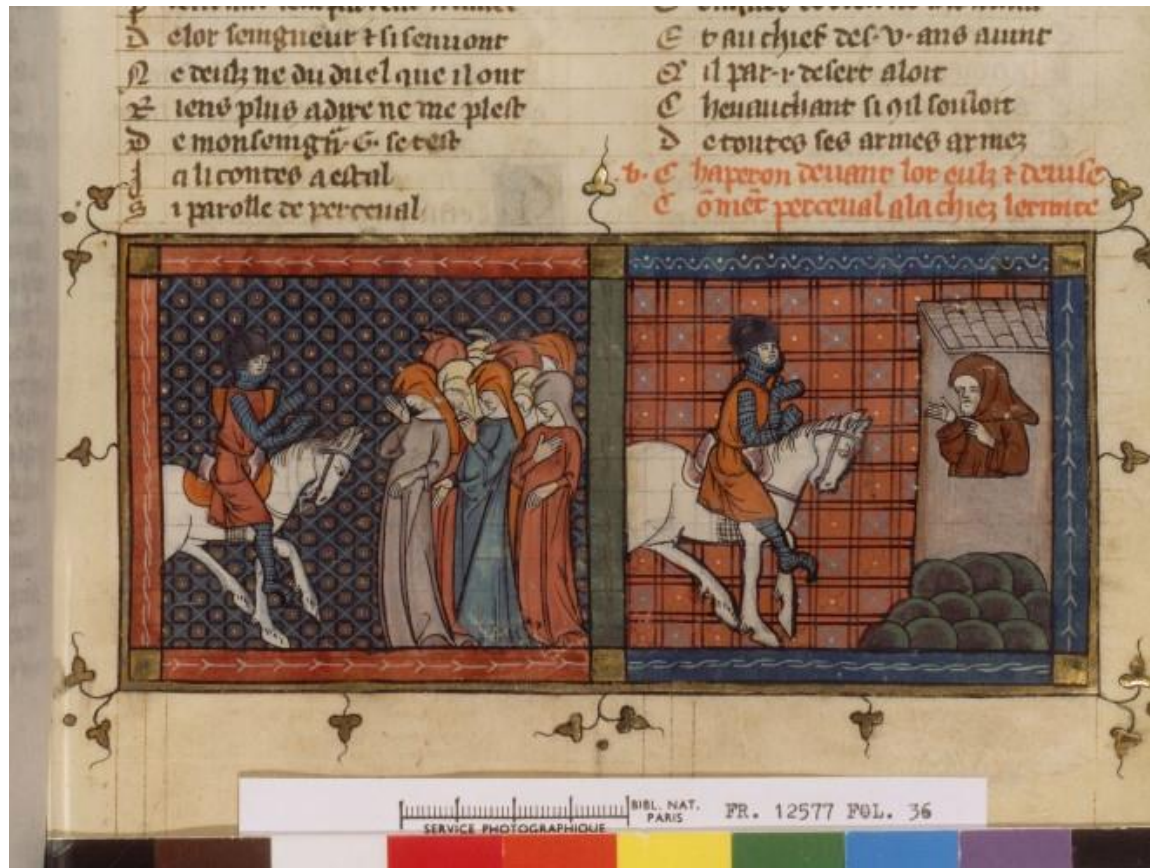 D e lor seingneur & si sen uont
N e deulz ne du duel que il ont
R iens plus a dire ne me plest
D e monseingñ .G. se test
J a li contes a estal
S i parolle de perceual
E t au chief des .v. ans auint
Q il par .i. desert aloit
C heuauchant si 9 il souloit
D e toutes ses armes armez
C haperon deuant lor eulz & deuise
C õmēt perceual ala chiez lermite
BIBL. NAT.
PARIS
SERVICE PHOTOGRAPHIQUE
FR. 12577 FOL. 36